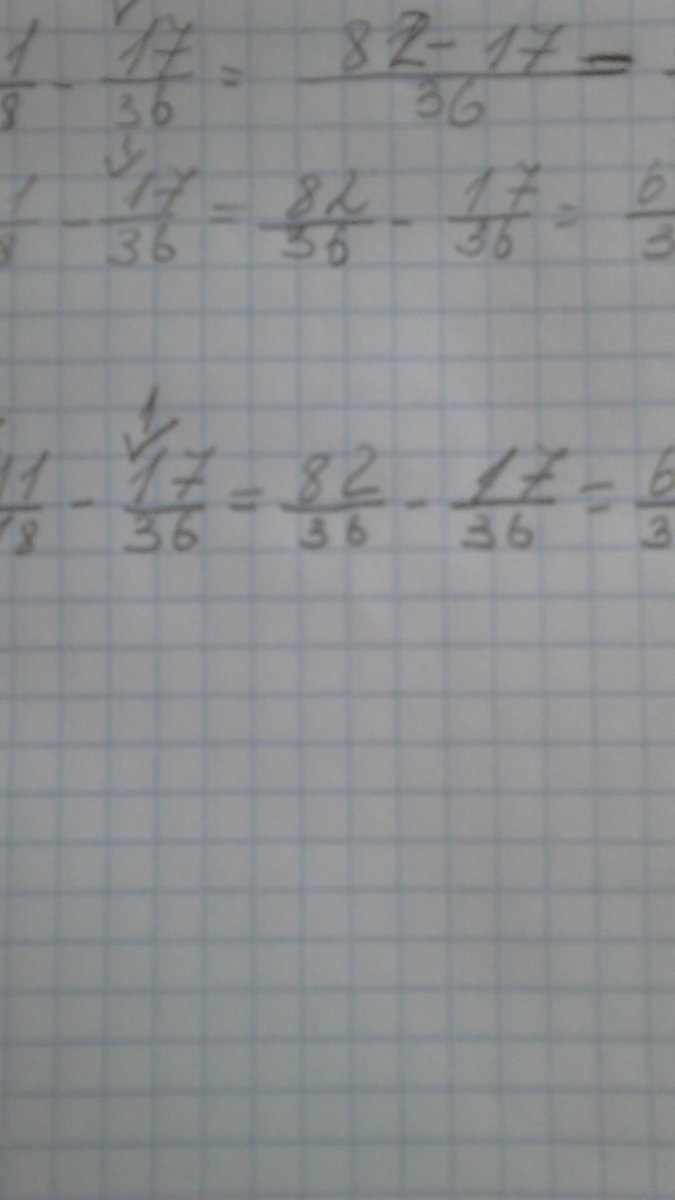 1/8 - 17/36 = 82 - 17/36 =
1/8 - 17/36 = 82/36 - 17/36 = 6/3
1
11/18 - 17/36 = 82/36 - 17/36 = 6/3